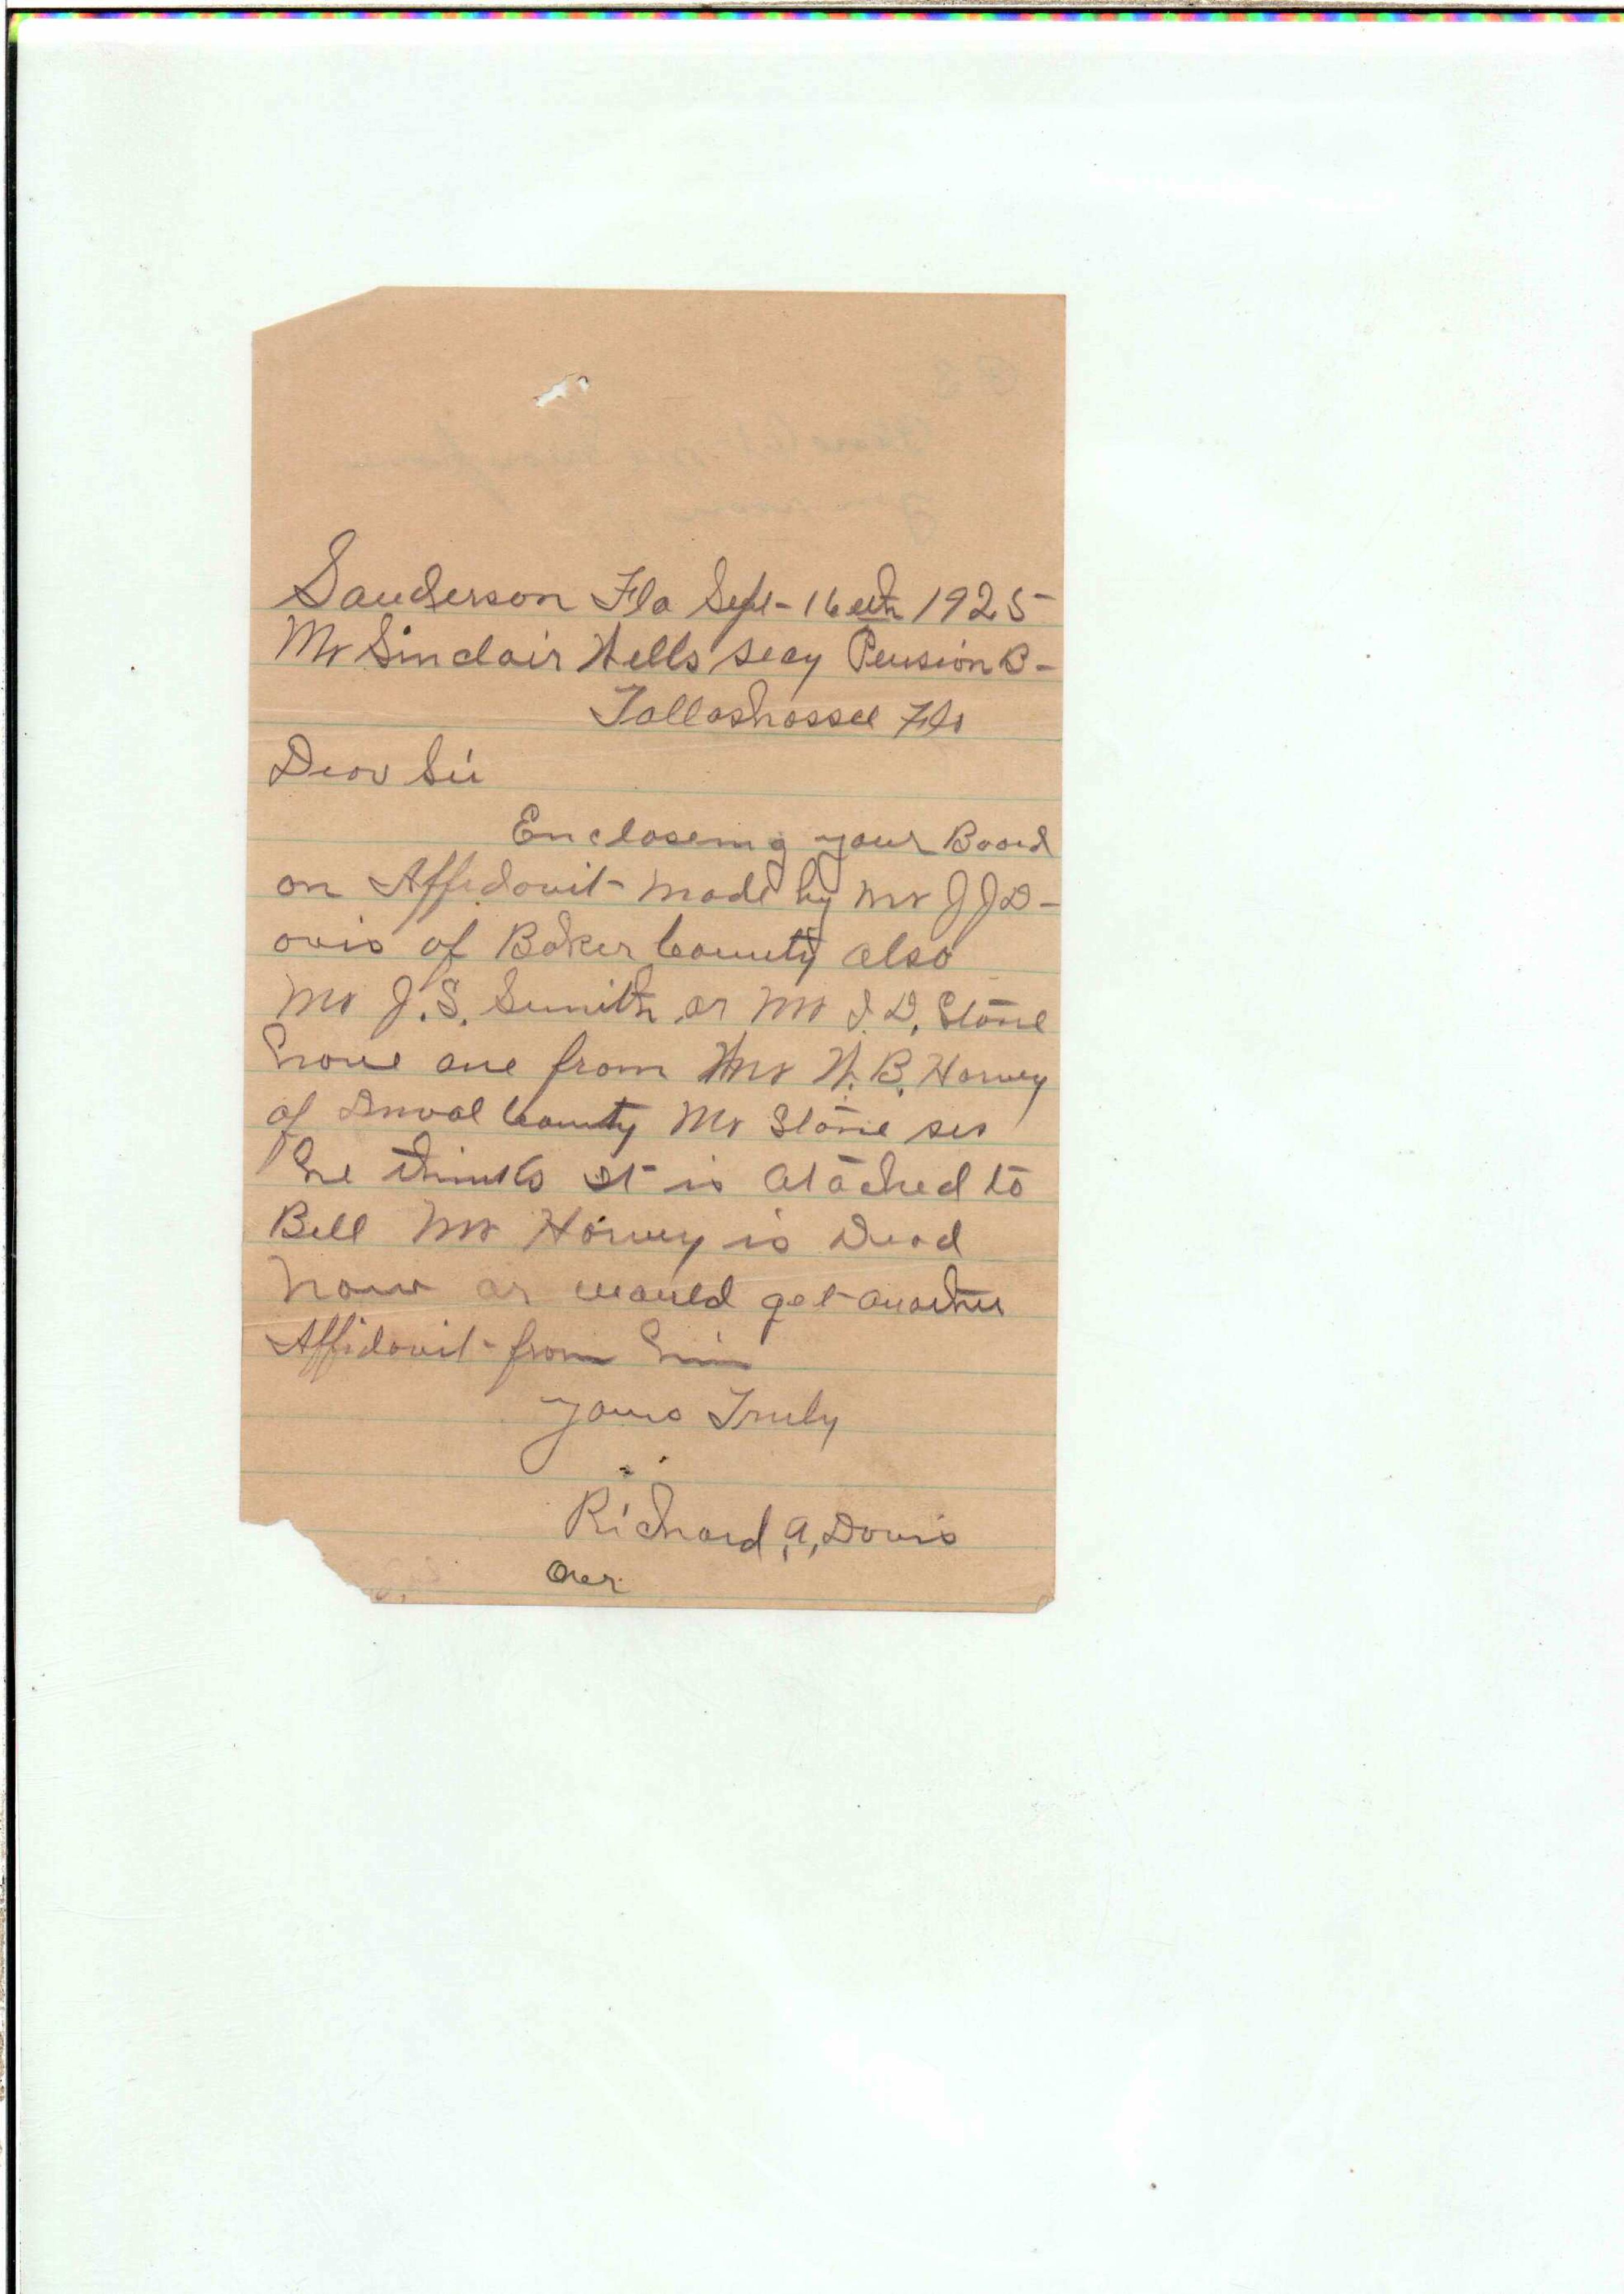 Sanderson Fla Sept-16eth 1925
Mr Sinclair Wells Secy Pension B-
Tallashassee Fla
Dear Sir
Encloseing your Board
an Affidavit made by Mr J J D-
avis of Baker County also
Mr J. S. Smith or Mr J. D. Stone
have one from Mr W. B. Harvey
of Duval County Mr Stone ses
he thinks it is atached to
Bill Mr Harvey is Dead
now or would get another
Affidavit from him
yours Truly
Richard, A, Davis
Over